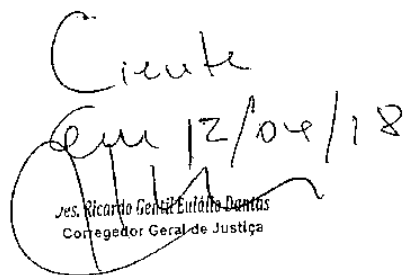 Ciente
em 12/04/18
Des. Ricardo Gentil Eulálio Dantas
Corregedor Geral de Justiça